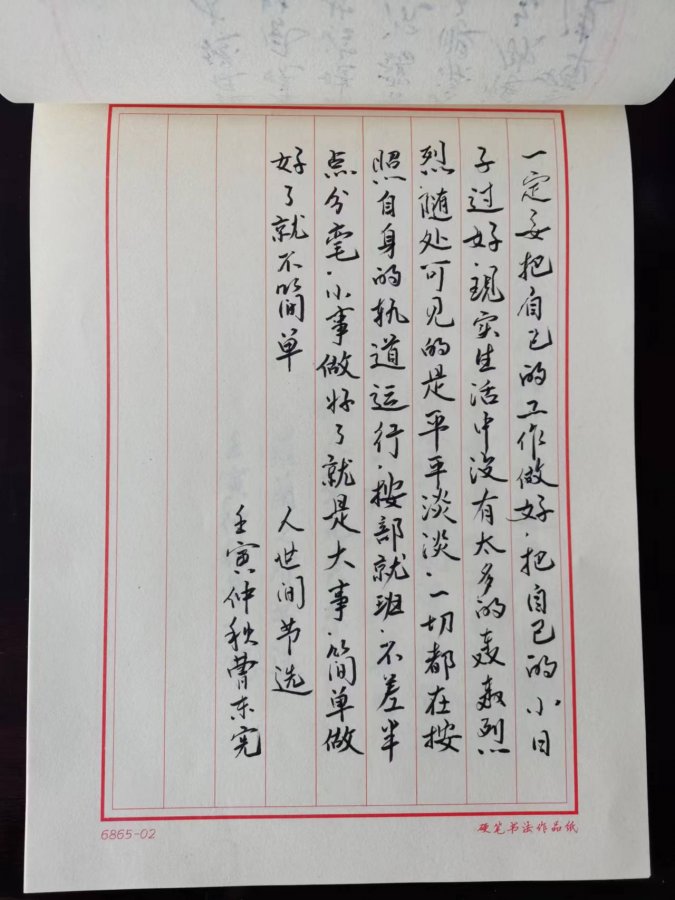 一定要把自己的工作做好.把自己的小日
子过好.现实生活中没有太多的轰轰烈
烈.随处可见的是平平淡淡.一切都在按
照自身的轨道运行.按部就班.不差半
点分毫.小事做好了就是大事.简单做
好了就不简单
人世间节选
壬寅仲秋曹东宪
6865-02
硬笔书法作品纸